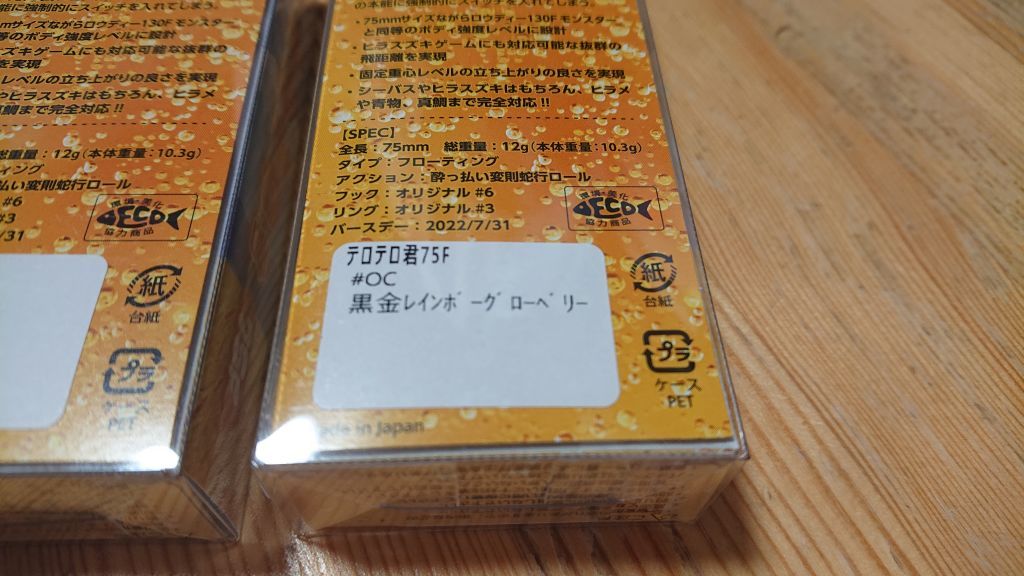 の本能に強制的にスイッチを入れてしまう。
・75mmサイズながらロウディー130Fモンスター
と同等のボディ強度レベルに設計
・ヒラスズキゲームにも対応可能な抜群の
飛距離を実現
・固定重心レベルの立ち上がりの良さを実現
・シーバスやヒラスズキはもちろん、ヒラメ
や青物、真鯛まで完全対応!!
【SPEC】
全長：75mm 総重量：12g(本体重量：10.3g)
タイプ：フローティング
アクション：酔っ払い変則蛇行ロール
フック：オリジナル #6
リング：オリジナル #3
バースデー：2022/7/31
環境・美化
ECO
協力商品
テロテロ君75F
#OC
黒金ﾚｲﾝﾎﾞｰｸﾞﾛｰﾍﾞﾘｰ
紙
台紙
プラ
ケース
PET
ade in Japan
mサイズながらロウディー130Fモンスター
等のボディ強度レベルに設計
ズキゲームにも対応可能な抜群の
を実現
レベルの立ち上がりの良さを実現
やヒラスズキはもちろん、ヒラメ
真鯛まで完全対応!!
総重量：12g(本体重量：10.3g)
ティング
払い変則蛇行ロール
#6
#3
/31
環境・美化
ECO
協力商品
紙
台紙
プラ
ケース
PET